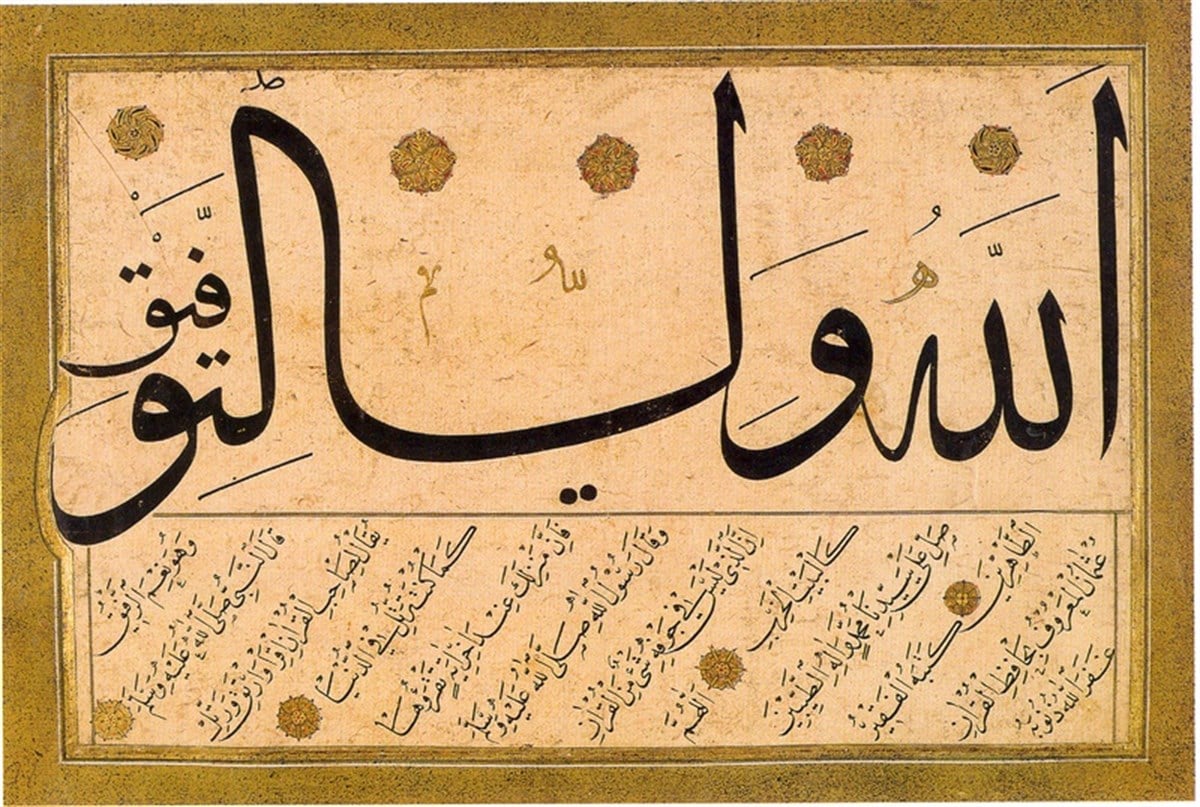 الله ولي التوفيق
وهو نعم الرفيق
قال النبي صلى الله عليه وسلم
يقال لصاحب القرآن اقرأ وارتق ورتل
كما كنت ترتل في الدنيا
فإن منزلك عند آخر آية تقرؤها
وقال رسول الله صلى الله عليه وسلم
إن الذي ليس في جوفه شيء من القرآن
كالبيت الخرب
اللهم
صل على سيدنا محمد وآله الطيبين
الطاهرين
كتبه الفقير
عثمان المعروف بحافظ القرآن
غفر الله ذنوبه